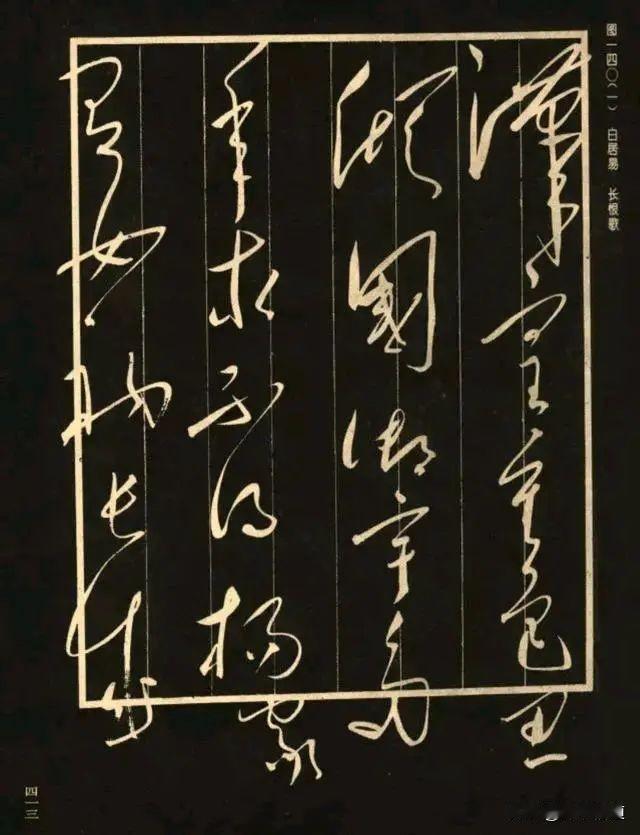 图一四〇（一） 白居易 长恨歌
漢皇重色思
傾國御宇多
年求不得楊家
有女初長成
四一三